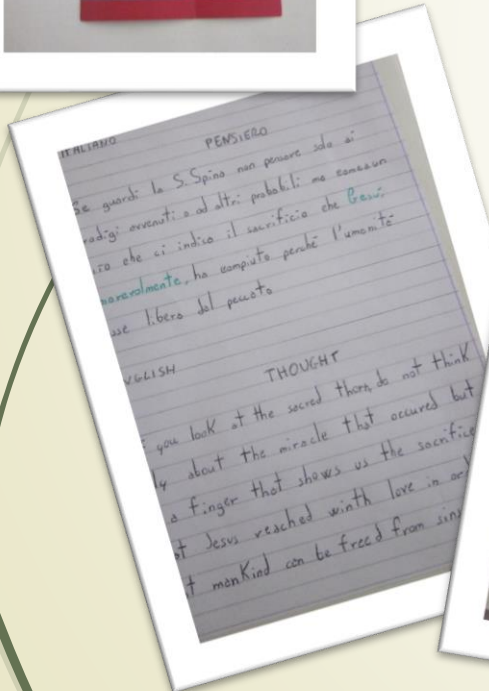 ITALIANO PENSIERO
Se guardi la S. Spina non pensare solo ai
rodigi avvenuti o ad altri probabili ma come un
ito che ci indica il sacrificio che Gesù,
moralmente, ha compiuto perché l'umanità
sse libera dal peccato
NGLISH THOUGHT
you look at the sacred thorn, do not think
ly about the miracle that occured but
a finger that shows us the sacrifice
t Jesus reached winth love in ord
t mankind can be freed from sins